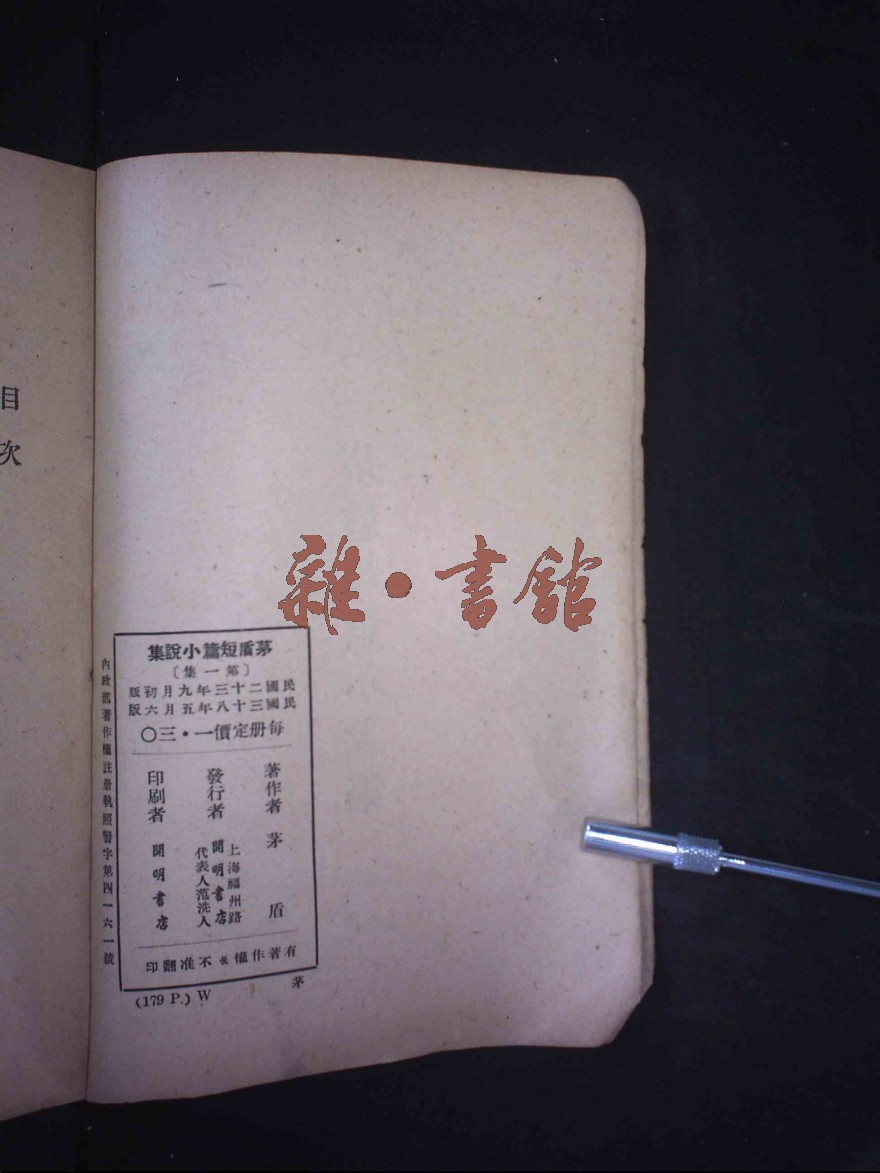 目次
雜·書館
茅盾短篇小說集
〔第一集〕
民國二十三年九月初版
民國三十八年五月六版
每册定價一·三〇
著作者 茅盾
發行者 上海福州路
開明書店
代表人范洗人
印刷者 開明書店
有著作權＊不准翻印
內政部著作權註册執照警字第四一六一號
(179 P.) W
茅